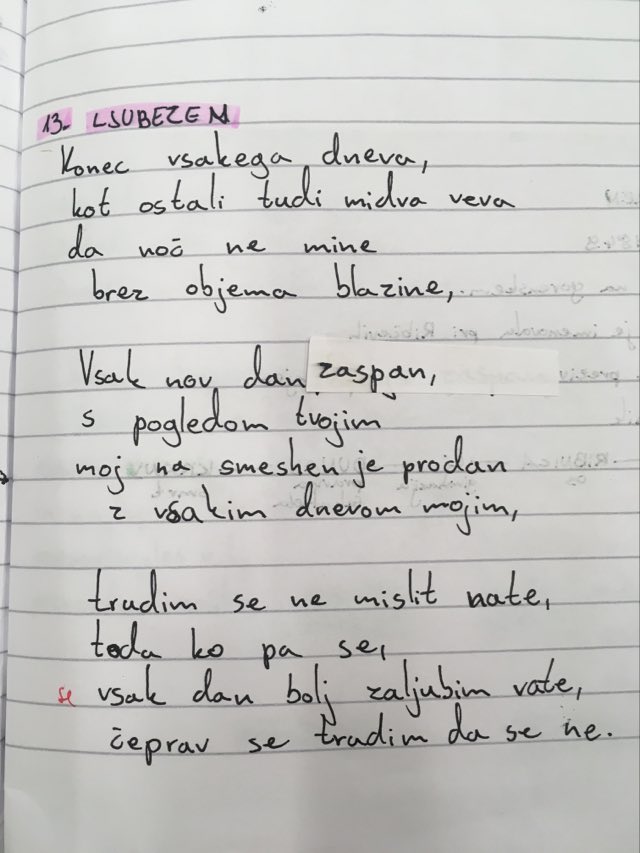 13. LJUBEZEN
Konec vsakega dneva,
kot ostali tudi midva veva
da noč ne mine
brez objema blazine,
Vsak nov dan zaspan,
s pogledom tvojim
moj na smeshen je prodan
z vsakim dnevom mojim,
trudim se ne mislit nate,
toda ko pa se,
se vsak dan bolj zaljubim vate,
čeprav se trudim da se ne.